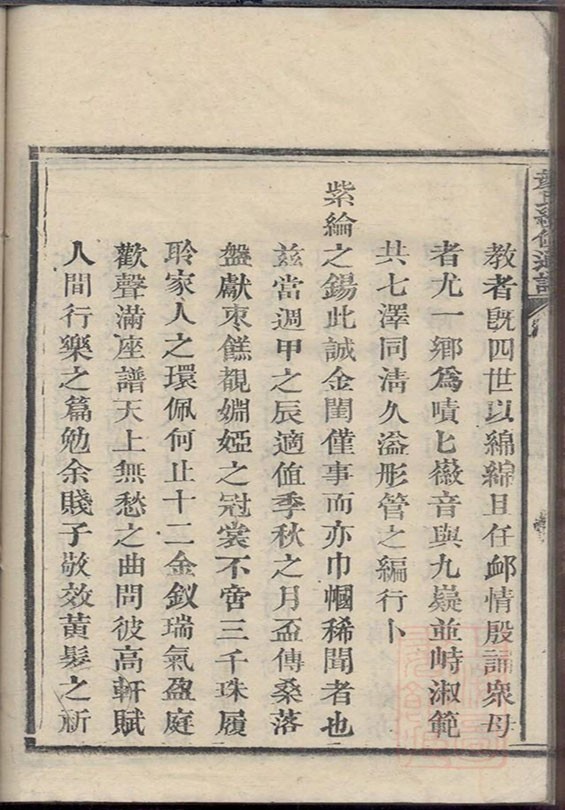 教者旣四世以綿綿且任䘏情殷誦衆母
者尤一鄉爲嘖匕徽音與九嶷並峙淑範
共七澤同淸久溢彤管之編行卜
紫綸之錫此誠金閨僅事而亦巾幗稀聞者也
兹當週甲之辰適值季秋之月盃傳桑落
盤獻枣餻覩嫺婭之冠裳不啻三千珠履
聆家人之環佩何止十二金釵瑞氣盈庭
歡聲滿座譜天上無愁之曲問彼高軒賦
人間行樂之篇勉余賤子敬效黃髮之祈